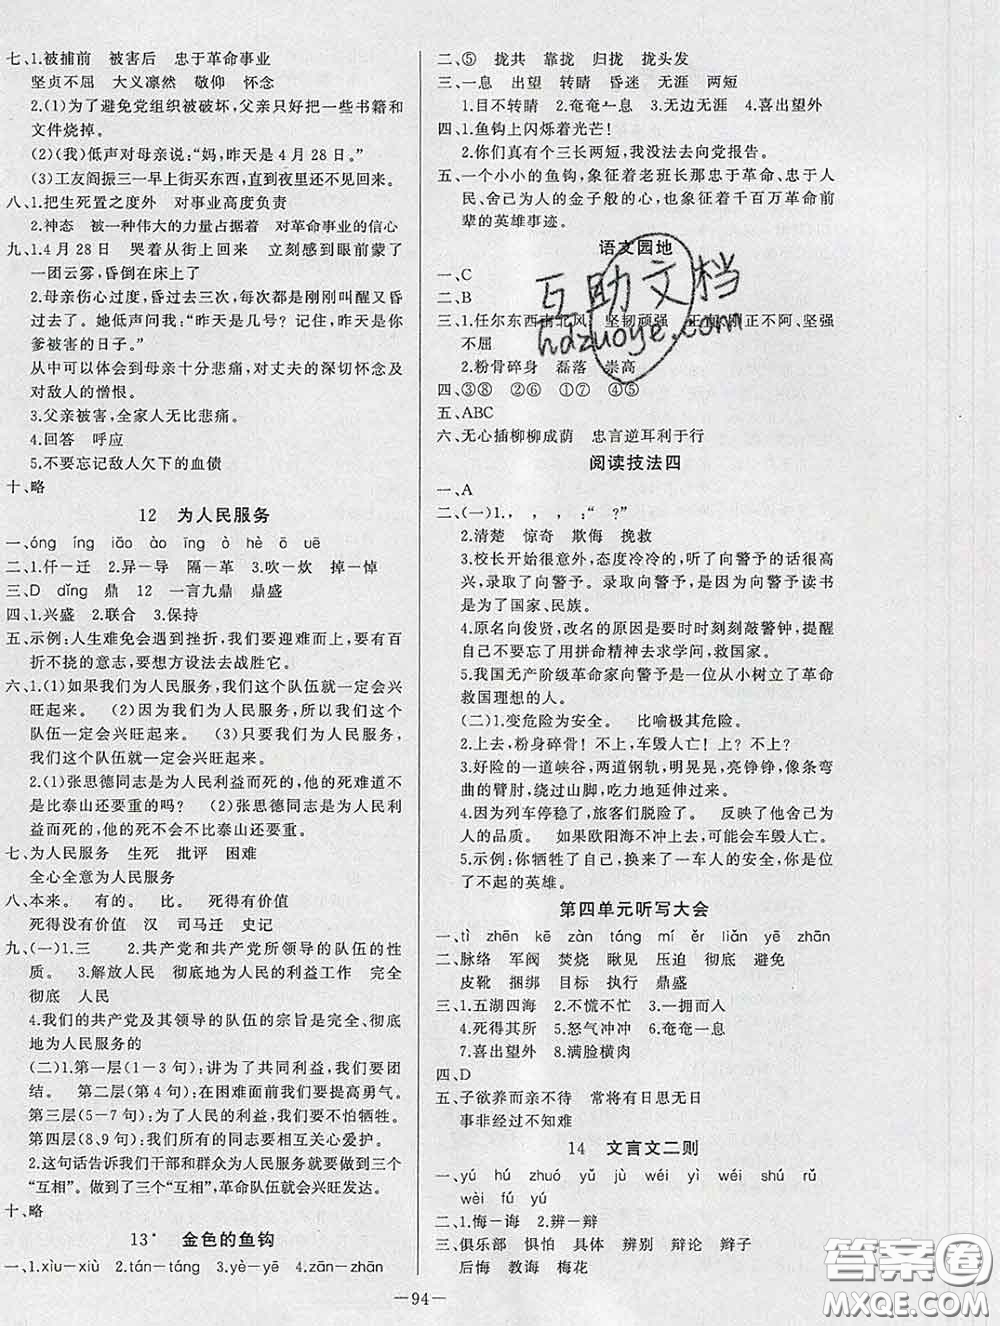 七、1.被捕前　被害后　忠于革命事业
坚贞不屈　大义凛然　敬仰　怀念
2.(1)为了避免党组织被破坏,父亲只好把一些书籍和
文件烧掉。
(2)(我)低声对母亲说:“妈,昨天是4月28日。”
(3)工友阎振三一早上街买东西,直到夜里还不见回来。
八、1.把生死置之度外　对事业高度负责
2.神态　被一种伟大的力量占据着　对革命事业的信心
九、1.4月28日　哭着从街上回来　立刻感到眼前蒙了
一团云雾,昏倒在床上了
2.母亲伤心过度,昏过去三次,每次都是刚刚叫醒又昏
过去了。她低声问我:“昨天是几号?记住,昨天是你
爹被害的日子。”
从中可以体会到母亲十分悲痛,对丈夫的深切怀念及
对敌人的憎恨。
3.父亲被害,全家人无比悲痛。
4.回答　呼应
5.不要忘记敌人欠下的血债
十、略
12　为人民服务
一、óng　íng　iāo　ào　īng　ò　hè　ō　uē
二、1.仟—迁　2.异—导　隔—革　3.吹—炊　掉—悼
三、D　dǐng　鼎　12　一言九鼎　鼎盛
四、1.兴盛　2.联合　3.保持
五、示例:人生难免会遇到挫折,我们要迎难而上,要有百
折不挠的意志,要想方设法去战胜它。
六、1.(1)如果我们为人民服务,我们这个队伍就一定会兴
旺起来。　(2)因为我们为人民服务,所以我们这个
队伍一定会兴旺起来。　(3)只要我们为人民服务,
我们这个队伍就一定会兴旺起来。
2.(1)张思德同志是为人民利益而死的,他的死难道不
是比泰山还要重的吗?　(2)张思德同志是为人民利
益而死的,他的死不会不比泰山还要重。
七、为人民服务　生死　批评　困难
全心全意为人民服务
八、本来。　有的。　比。　死得有价值
死得没有价值　汉　司马迁　史记
九、(一)1.三　2.共产党和共产党所领导的队伍的性
质。　3.解放人民　彻底地为人民的利益工作　完全
彻底　人民
4.我们的共产党及其领导的队伍的宗旨是完全、彻底
地为人民服务的
(二)1.第一层(1-3句):讲为了共同利益,我们要团
结。　第二层(第4句):在困难面前我们要提高勇气。
第三层(5-7句):为了人民的利益,我们不怕牺牲。
第四层(8、9句):我们所有的同志要相互关心爱护。
2.这句话告诉我们干部和群众为人民服务就要做到三个
“互相”。做到了三个“互相”,革命队伍就会兴旺发达。
十、略
13*　金色的鱼钩
一、1.xìu—xiù　2.tán—táng　3.yè—yē　4.zān—zhān
二、⑤　拢共　靠拢　归拢　拢头发
三、一息　出望　转睛　昏迷　无涯　两短
1.目不转睛　2.奄奄一息　3.无边无涯　4.喜出望外
四、1.鱼钩上闪烁着光芒!
2.你们真有个三长两短,我没法去向党报告。
五、一个小小的鱼钩,象征着老班长那忠于革命、忠于人
民、舍己为人的金子般的心,也象征着千百万革命前
辈的英雄事迹。
语文园地
一、C
二、B
三、1.任尔东西南北风　坚韧顽强　正不阿、坚强
不屈
2.粉骨碎身　磊落　崇高
四、③⑧　②⑥　①⑦　④⑤
五、ABC
六、无心插柳柳成荫　忠言逆耳利于行
阅读技法四
一、A
二、(一)1.,　,　,　:“　?”
2.清楚　惊奇　欺侮　挽救
3.校长开始很意外,态度冷冷的,听了向警予的话很高
兴,录取了向警予。录取向警予,是因为向警予读书
是为了国家、民族。
4.原名向俊贤,改名的原因是要时时刻刻敲警钟,提醒
自己不要忘了用拼命精神去求学问,救国家。
5.我国无产阶级革命家向警予是一位从小树立了革命
救国理想的人。
(二)1.变危险为安全。　比喻极其危险。
2.上去,粉身碎骨!不上,车毁人亡!上?不上?
3.好险的一道峡谷,两道钢轨,明晃晃,亮铮铮,像条弯
曲的臂肘,绕过山脚,吃力地延伸过来。
4.因为列车停稳了,旅客们脱险了。　反映了他舍己为
人的品质。　如果欧阳海不冲上去,可能会车毁人亡。
5.示例:你牺牲了自己,换来了一车人的安全,你是位
了不起的英雄。
第四单元听写大会
一、tì　zhēn　kē　zàn　táng　mí　ěr　liǎn　yē　zhān
二、脉络　军阀　焚烧　瞅见　压迫　彻底　避免
皮靴　捆绑　目标　执行　鼎盛
三、1.五湖四海　2.不慌不忙　3.一拥而入
4.死得其所　5.怒气冲冲　6.奄奄一息
7.喜出望外　8.满脸横肉
四、D
五、子欲养而亲不待　常将有日思无日
事非经过不知难
14　文言文二则
一、yú　hú　zhuó　yǔ　jù　wéi　yì　wéi　shú　rǔ
wèi　fú　yú
二、1.悔—诲　2.辨—辩
三、俱乐部　惧怕　具体　辨别　辩论　辫子
后悔　教海　梅花
—94—
互助文档
hdzuoye.com
答案圈
MXQE.COM